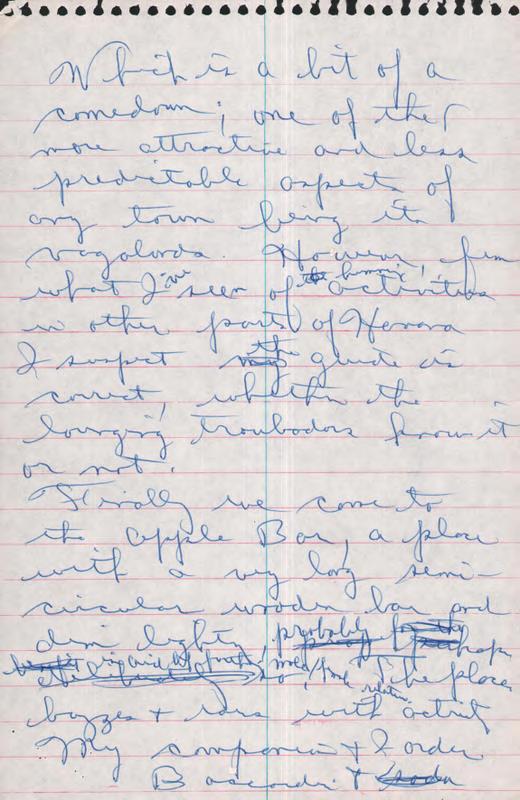 Which is a bit of a
comedown; one of the
more attractive and less
predictable aspects of
any town being its
vagabonds. However, from
what I've seen of the hummin' activities
in other parts of Havana
I suspect the guide is
correct, whether the
lounging troubadors know it
or not.
Finally we come to
the Apple Bar, a place
with a very long semi-
circular wooden bar and
dim lights, probably perhaps
The place
buzzes + roars with activity
My companion + I order
Bacardi +